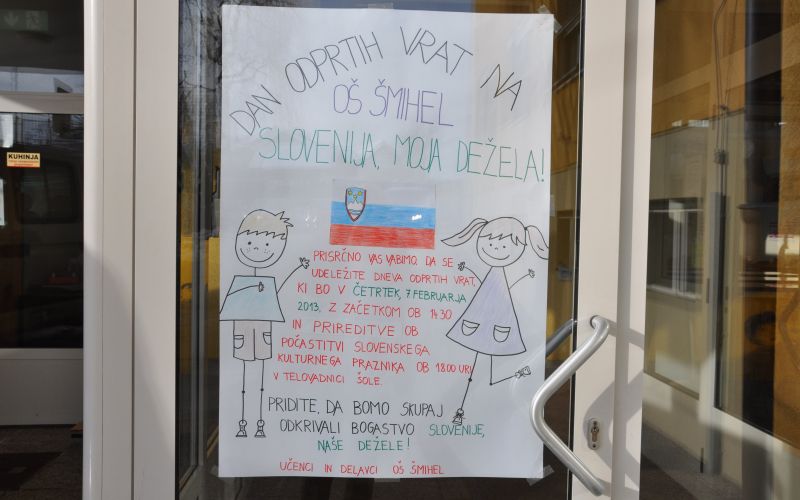 DAN ODPRTIH VRAT NA
OŠ ŠMIHEL
SLOVENIJA, MOJA DEŽELA!
PRISRČNO VAS VABIMO, DA SE
UDELEŽITE DNEVA ODPRTIH VRAT,
KI BO V ČETRTEK, 7. FEBRUARJA
2013, Z ZAČETKOM OB 14.30
IN PRIREDITVE OB
POČASTITVI SLOVENSKEGA
KULTURNEGA PRAZNIKA OB 18.00 URI
V TELOVADNICI ŠOLE.
PRIDITE, DA BOMO SKUPAJ
ODKRIVALI BOGASTVO SLOVENIJE,
NAŠE DEŽELE!
UČENCI IN DELAVCI OŠ ŠMIHEL
KUHINJA